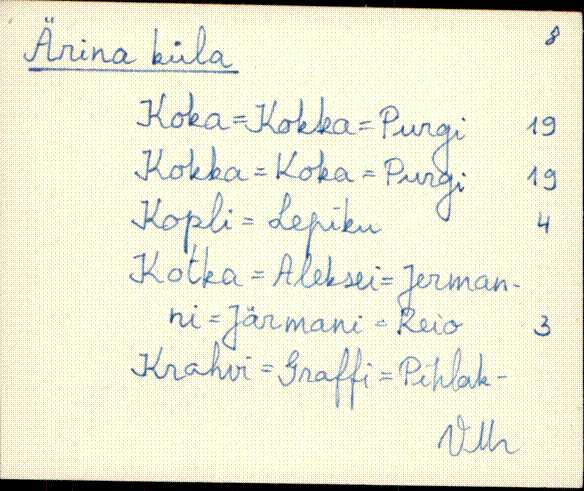 8
Ärina küla
Koka = Kokka = Purgi 19
Kokka = Koka = Purgi 19
Kopli = Lepiku 4
Kotka = Aleksei = Jerman-
ni = Järmani = Reio 3
Krahvi = Graffi = Pihlak-